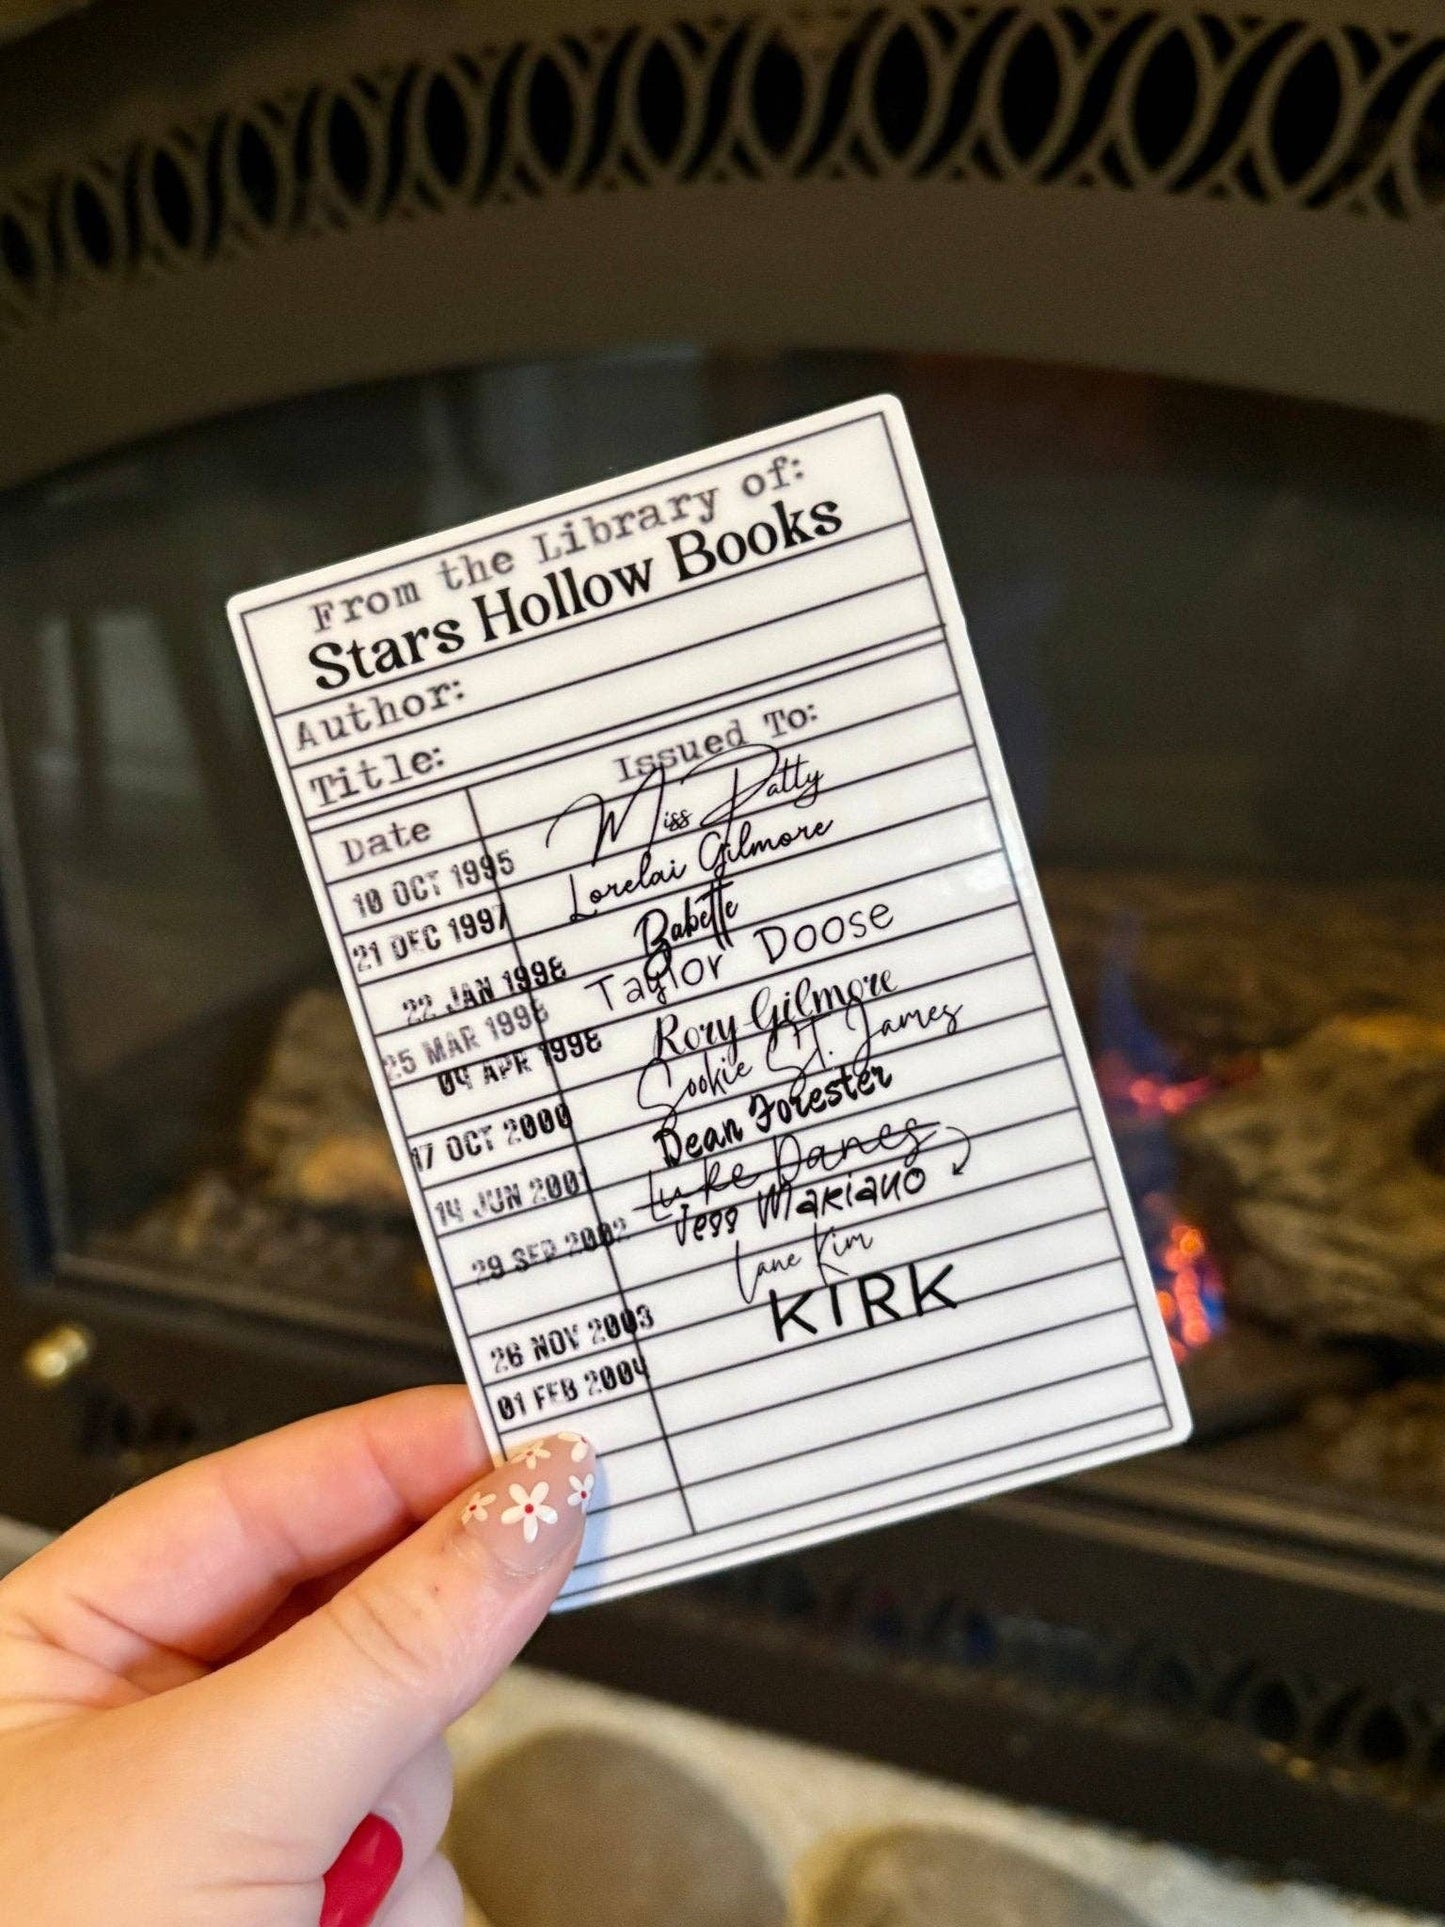 From the Library of:
Stars Hollow Books
Author:
Title:
Date Issued To:
10 OCT 1995 Miss Patty
21 DEC 1997 Lorelai Gilmore
22 JAN 1998 Babette
25 MAR 1998 Taylor Doose
04 APR 1998 Rory Gilmore
17 OCT 2000 Sookie St. James
14 JUN 2001 Dean Forester
29 SEP 2002 Luke Danes
Jess Mariano
26 NOV 2003 Lane Kim
01 FEB 2004 KIRK